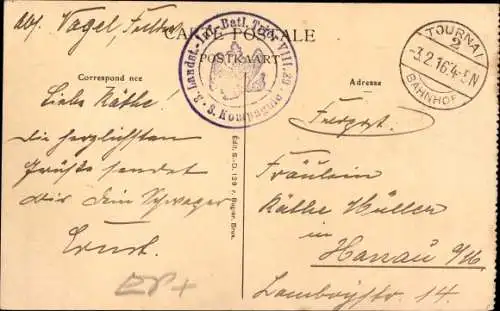 Abs. Vogel, Feldw.
CARTE POSTALE
POSTKAART
2. Landst.-Inf.-Batl. Trier VIII.29
* 3. Kompagnie *
TOURNAI
2
-3.2.16.4-5N
BAHNHOF
Correspond nce
Adresse
Feldpost.
Liebe Käthe!
Die herzlichsten
Grüße sendet
Dir Dein Schwager
Ernst.
Edit. S.-D. 129 r. Rogier, Brux.
Fräulein
Käthe Müller
in
Hanau a/M
Lamboystr. 14.